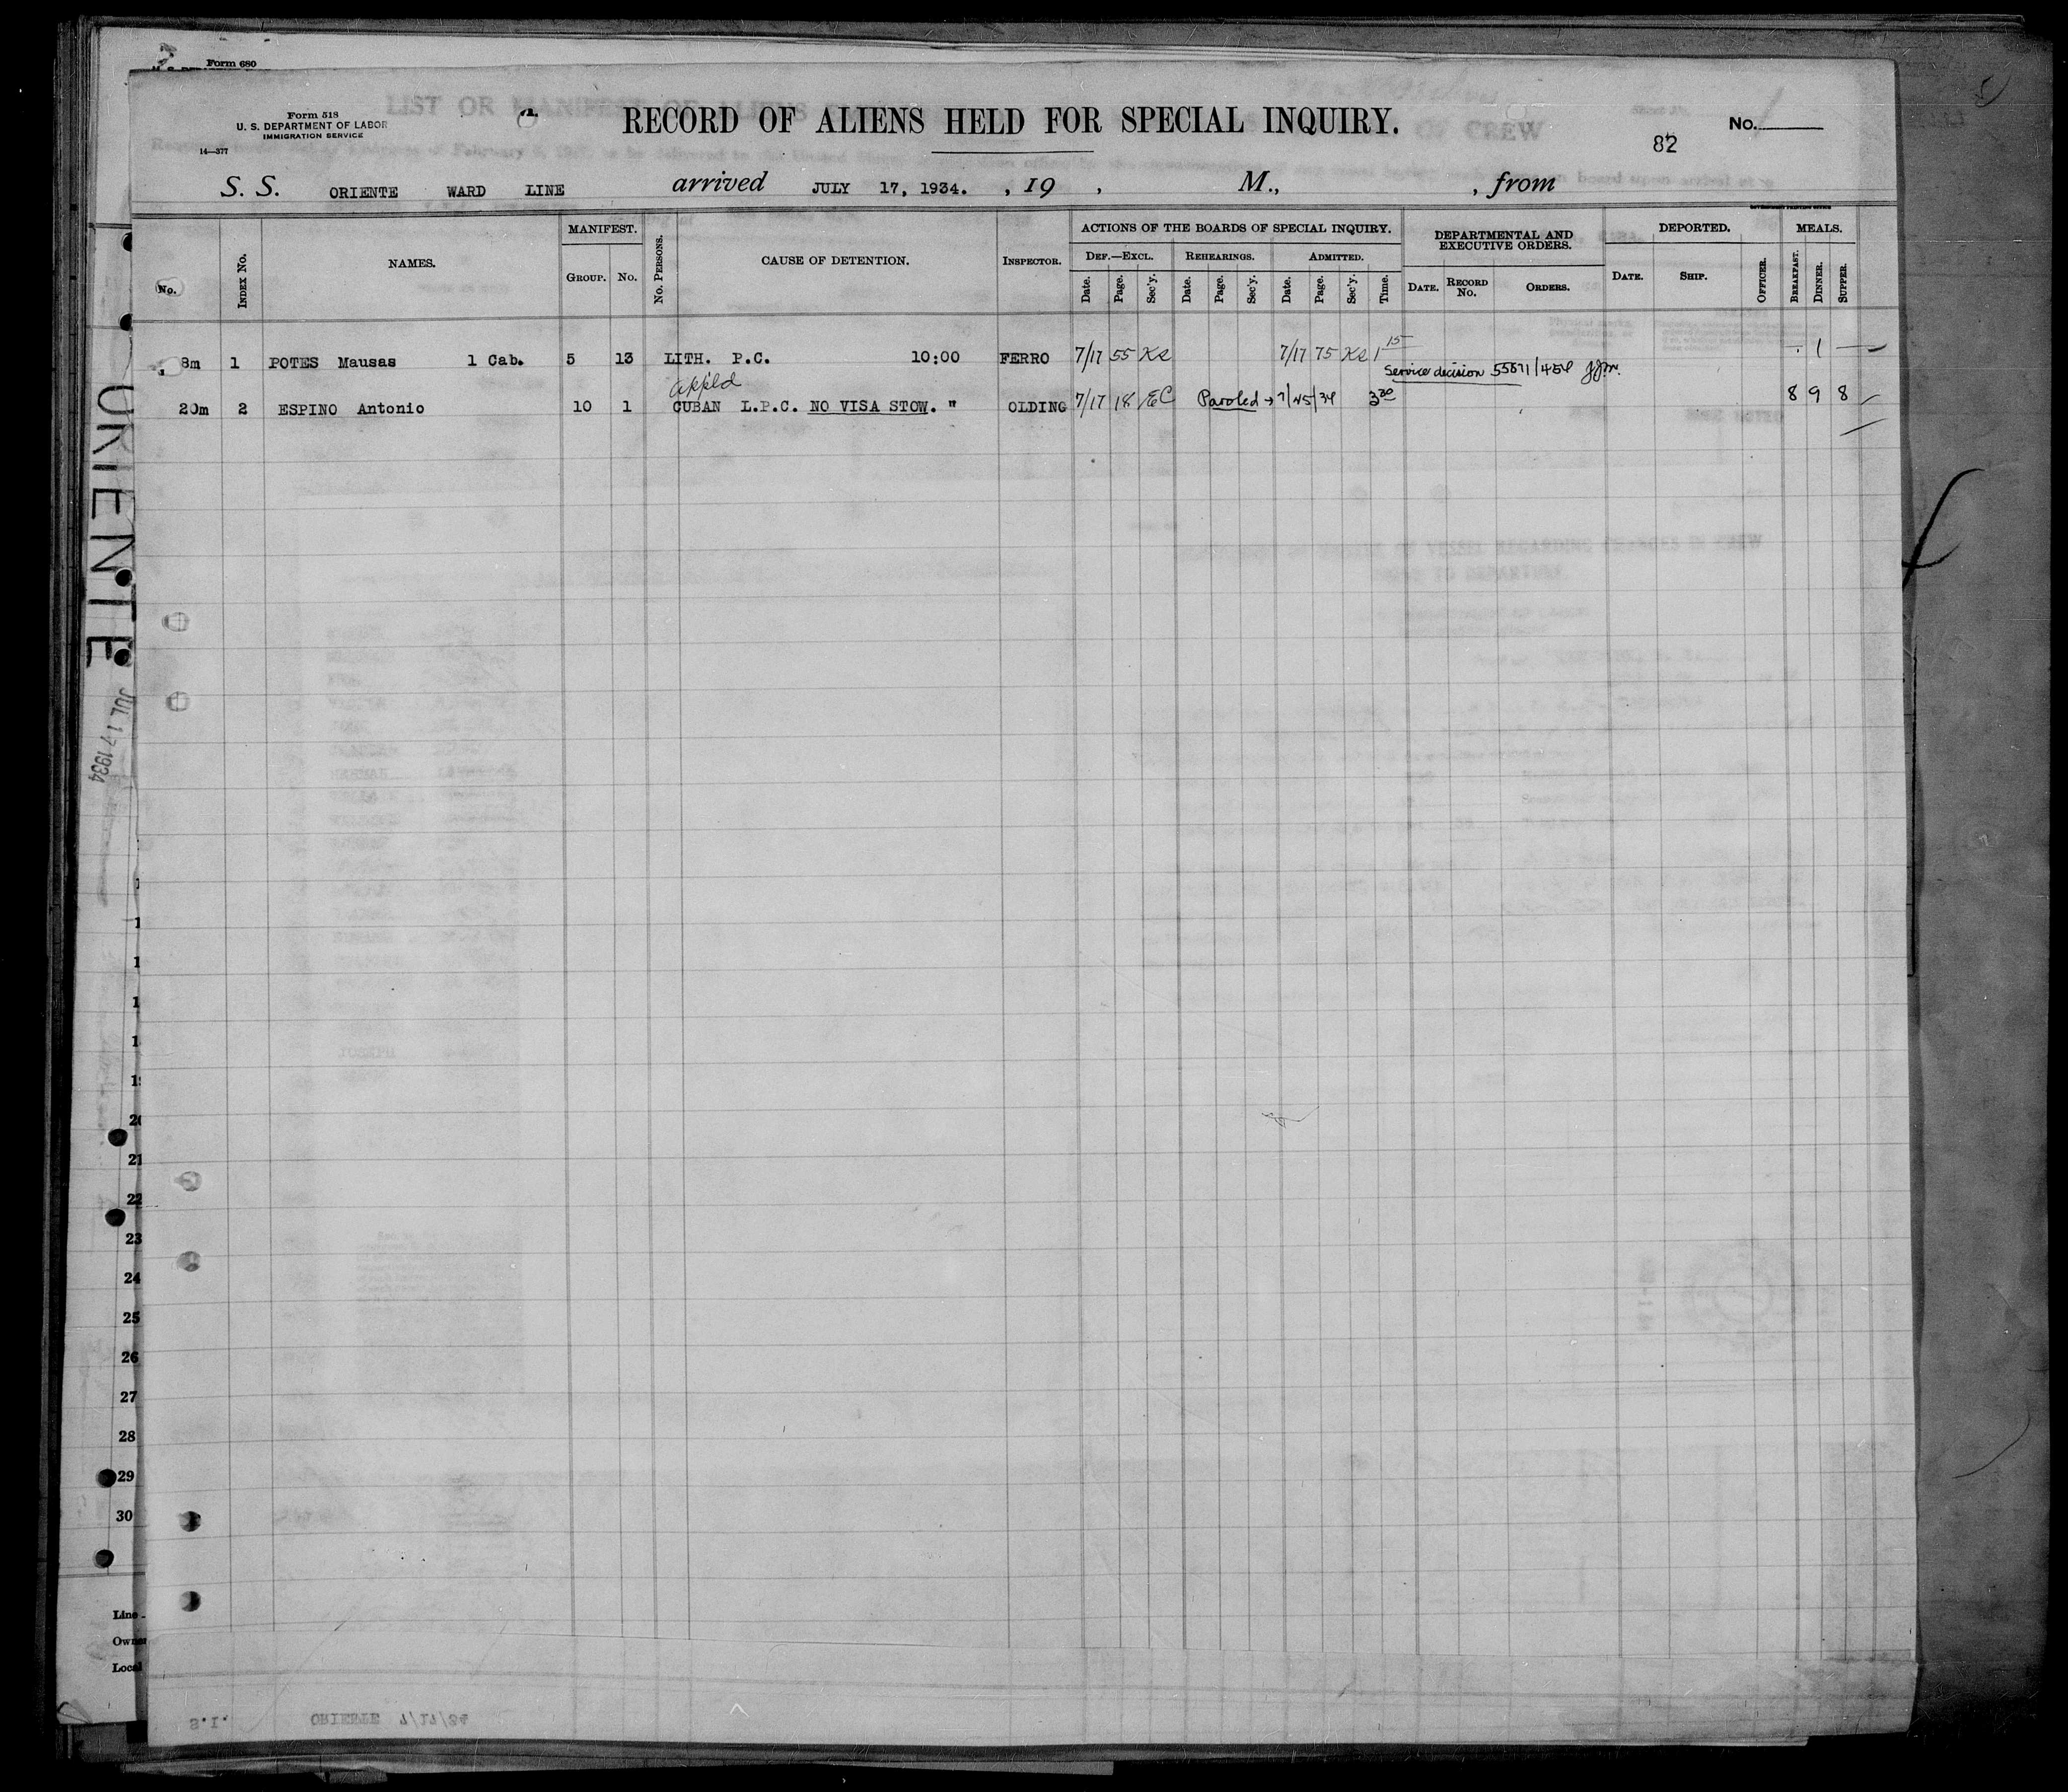 Form 680
Form 518
U. S. DEPARTMENT OF LABOR
IMMIGRATION SERVICE
14—377
RECORD OF ALIENS HELD FOR SPECIAL INQUIRY.
82
No.
S. S. ORIENTE WARD LINE arrived JULY 17, 1934. , 19 , M., , from
GOVERNMENT PRINTING OFFICE
No.
INDEX No.
NAMES.
MANIFEST.
GROUP. No.
No. PERSONS.
CAUSE OF DETENTION.
INSPECTOR.
ACTIONS OF THE BOARDS OF SPECIAL INQUIRY.
DEF.—EXCL. REHEARINGS. ADMITTED.
Date. Page. Sec'y. Date. Page. Sec'y. Date. Page. Sec'y. Time.
DEPARTMENTAL AND
EXECUTIVE ORDERS.
DATE. RECORD No. ORDERS.
DEPORTED.
DATE. SHIP. OFFICER.
MEALS.
BREAKFAST. DINNER. SUPPER.
8m 1 POTES Mausas 1 Cab. 5 13 LITH. P.C. 10:00 FERRO 7/17 55 7/17 75 1 15 1
Service decision
appld
20m 2 ESPINO Antonio 10 1 CUBAN L.P.C. NO VISA STOW. " OLDING 7/17 18 EC Paroled → 7/25/34 3 30 8 9 8
ORIENTE
JUL 17 1934
20
21
22
23
24
25
26
27
28
29
30
Line
Owner
Local
S.I. ORIENTE 7/17/34